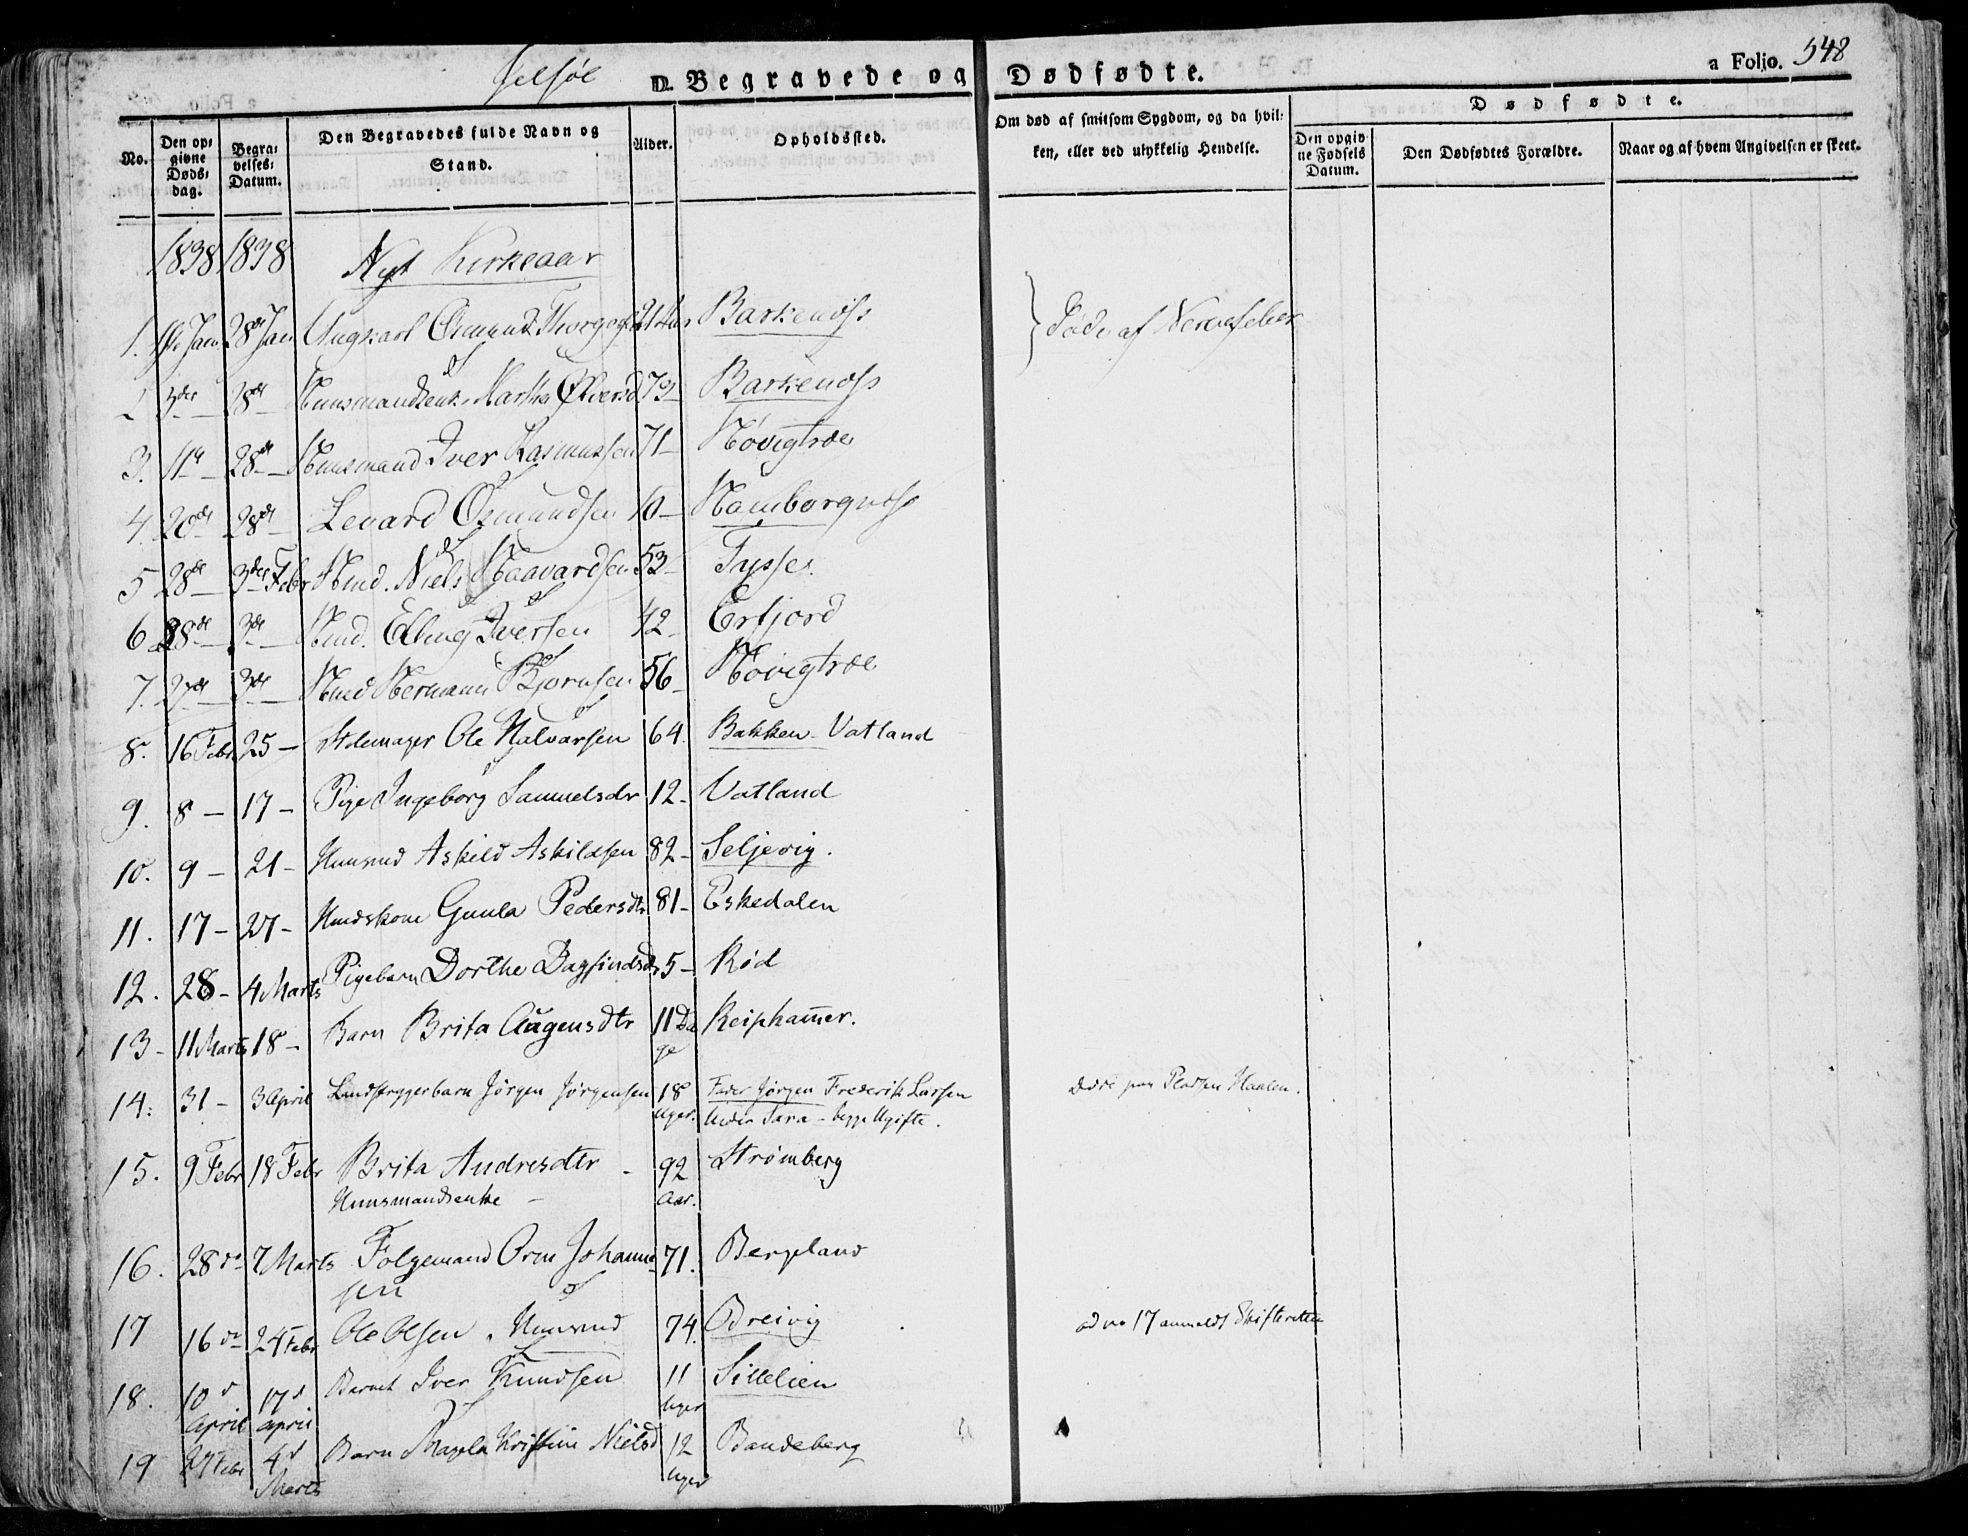 Jelsøe
D. Begravede og Dødfødte.
a Folio. 548
No.
Den opgivne Dødsdag.
Begravelses-Datum.
Den Begravedes fulde Navn og Stand.
Alder.
Opholdssted.
Om død af smitsom Sygdom, og da hvilken, eller ved ulykkelig Hendelse.
Dødfødte.
Den opgivne Fødsels Datum.
Den Dødfødtes Forældre.
Naar og af hvem Angivelsen er skeet.
1838 1838 Nyt Kirkeaar
1. Jan 28de Jan Ungkarl Osmund 21 Aar Barkenæss Døde af Nervefeber
2 3die 28de Huusmandsenke Martha 79 Barkenæss
3. 11te 28de Huusmand Iver Rasmussen 71 Høvigtræe
4. 20de 28de Levard Osmundsen 10 Hamborgnæss
5 28de 3die Febr Hmd. Niels Haavardsen 53 Tysse
6 28de 3die Hmd. Elling Iversen 42 Erfjord
7. 27de 3die Hmd Hermann Bjørnsen 56 Høvigtræe
8. 16 Febr 25 Ole Halvorsen 64 Bakken Vatland
9. 8 17 Pige Ingeborg Samuelsdtr 12 Vatland
10. 9 21 Huusmd Askild Askildsen 82 Seljevig.
11. 17 27 Hmdskone Gunla Pedersdtr 81 Eskedalen
12. 28 4 Marts Pigebarn Dorthe Dagfindsd 5 Rød
13 11 Marts 18 Barn Brita Augensdtr 11 Dage Reiphamer.
14. 31 3 April Landstrygerbarn Jørgen Jørgensen 18 Uger. Fader Jørgen Frederik Larsen
Moder Sara - begge Ugifte. Døde paa Pladsen Haalen.
15. 9 Febr 18 Febr Brita Andresdtr 92 Aar. Strømberg
Huusmandsenke
16. 28 do 7 Marts Følgemand Orm Johannessen 71. Bergeland
17 16 do 24 Febr Ole Olsen, Huusmd 74. Breivig ad no 17 anmeldt Skifteretten
18. 10d April 17d April Barnet Iver Knudsen 11 Uger Sillelien
19 27 Febr 4d Marts Barn Kristine Nielsd 12 Uger Bandeberg